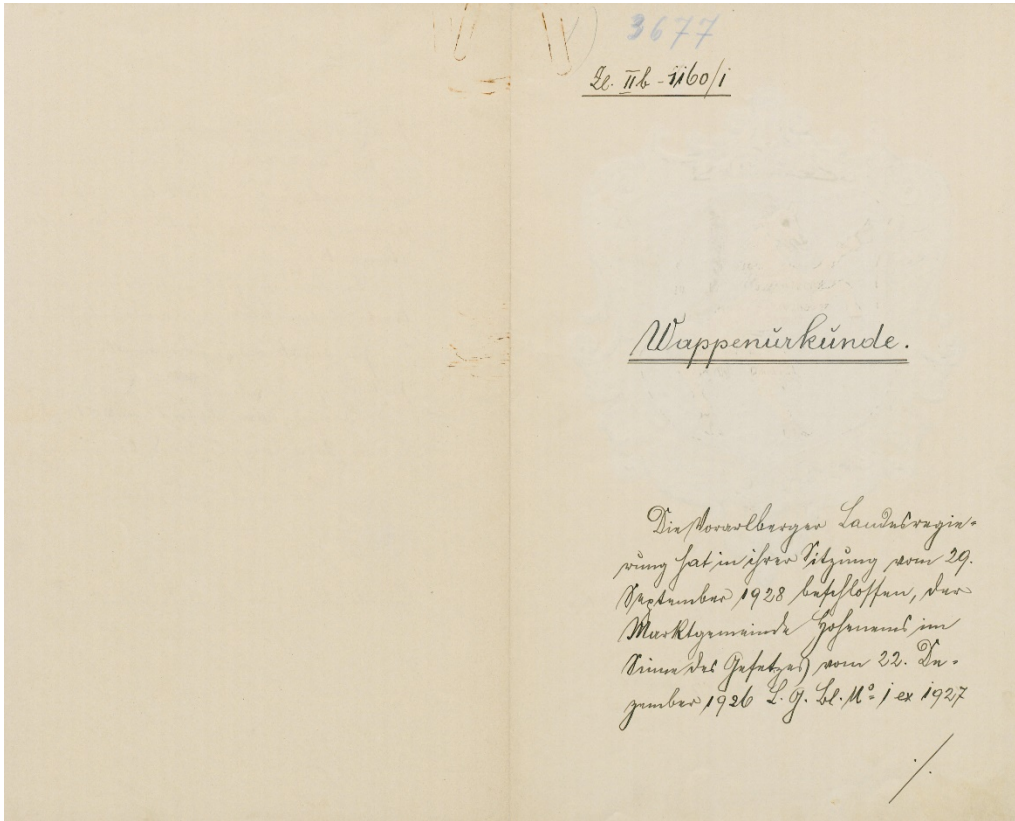 3677
Zl. IIb-1160/1
Wappenurkunde.
Die Vorarlberger Landesregie-
rung hat in ihrer Sitzung vom 29.
September 1928 beschlossen, der
Marktgemeinde Hohenems im
Sinne des Gesetzes vom 22. De-
zember 1926 L. G. Bl. No 1 ex 1927
./.